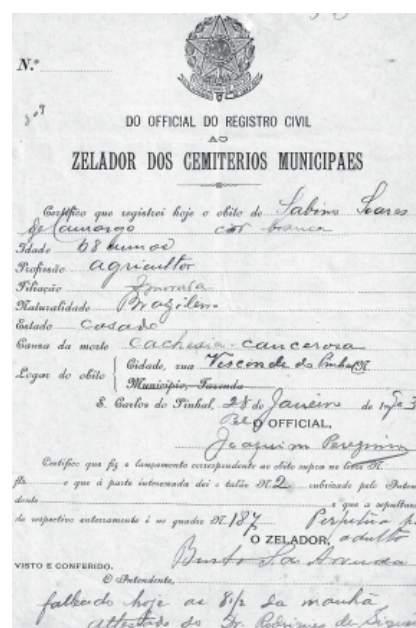 N.º
DO OFFICIAL DO REGISTRO CIVIL
AO
ZELADOR DOS CEMITERIOS MUNICIPAES
Certifico que registrei hoje o obito de Sabino Soares
de Camargo cor branca
Idade 68 annos
Profissão agricultor
Filiação Ignorada
Naturalidade Brazileiro
Estado casado
Causa da morte Cachexia cancerosa
Logar do obito Cidade, rua Visconde do Pinhal N.
Municipio, Fazenda
S. Carlos do Pinhal, 28 de Janeiro de
O OFFICIAL,
Joaquim
Certifico que fiz o lançamento correspondente ao obito supra no livro N.
fls. e que á parte interessada dei o talão N. 2 rubricado pelo Inten
dente e que a sepultura
do respectivo enterramento é no quadro N. 187 Perpetua
O ZELADOR, adulto
VISTO E CONFERIDO.
O Intendente,
fallecido hoje as 8 1/2 da manhã
Attestado do Dr. Rodrigues de